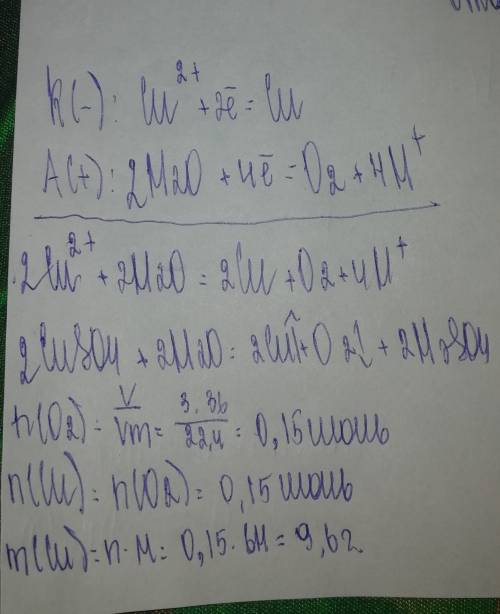 K(-): Cu²⁺ + 2ē = Cu
A(+): 2H2O + 4ē = O2 + 4H⁺
2Cu²⁺ + 2H2O = 2Cu + O2 + 4H⁺
2CuSO4 + 2H2O = 2Cu + O2↑ + 2H2SO4
n(O2) = V/Vm = 3.36/22,4 = 0,15 моль
n(Cu) = n(O2) = 0,15 моль
m(Cu) = n·M = 0,15·64 = 9,6г.